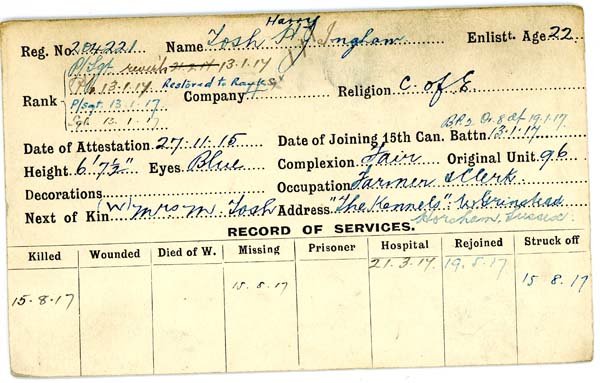 Harry
Reg. No. 204221 Name Tosh H J Ingham Enlistt. Age 22
P/Sgt 13.1.17
Pte 13.1.17 Restored to Rank Sgt
Rank P/Sgt. 13.1.17 Company Religion C. of E
Sgt. 13.1.17 BP2 Or. 8 of 19.1.17
Date of Attestation 27-11-15 Date of Joining 15th Can. Battn. 13.1.17
Height 6'7½" Eyes Blue Complexion Fair Original Unit 96
Decorations Occupation Farmer & Clerk
Next of Kin (W) Mrs M. Tosh Address "The Kennels": W. Grinstead
Horsham, Sussex.
RECORD OF SERVICES.
Killed Wounded Died of W. Missing Prisoner Hospital Rejoined Struck off
21.3.17 19.5.17
15.8.17 15.8.17 15.8.17